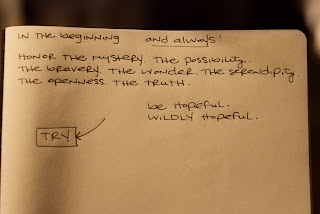 IN THE beginning and always!
HONOR THE MYSTERY. THE POSSIBILITY.
THE bravery. THE WONDER. THE SERENDIPITY.
THE OPENNESS. THE TRUTH.
be Hopeful.
WILDLY Hopeful.
TRY